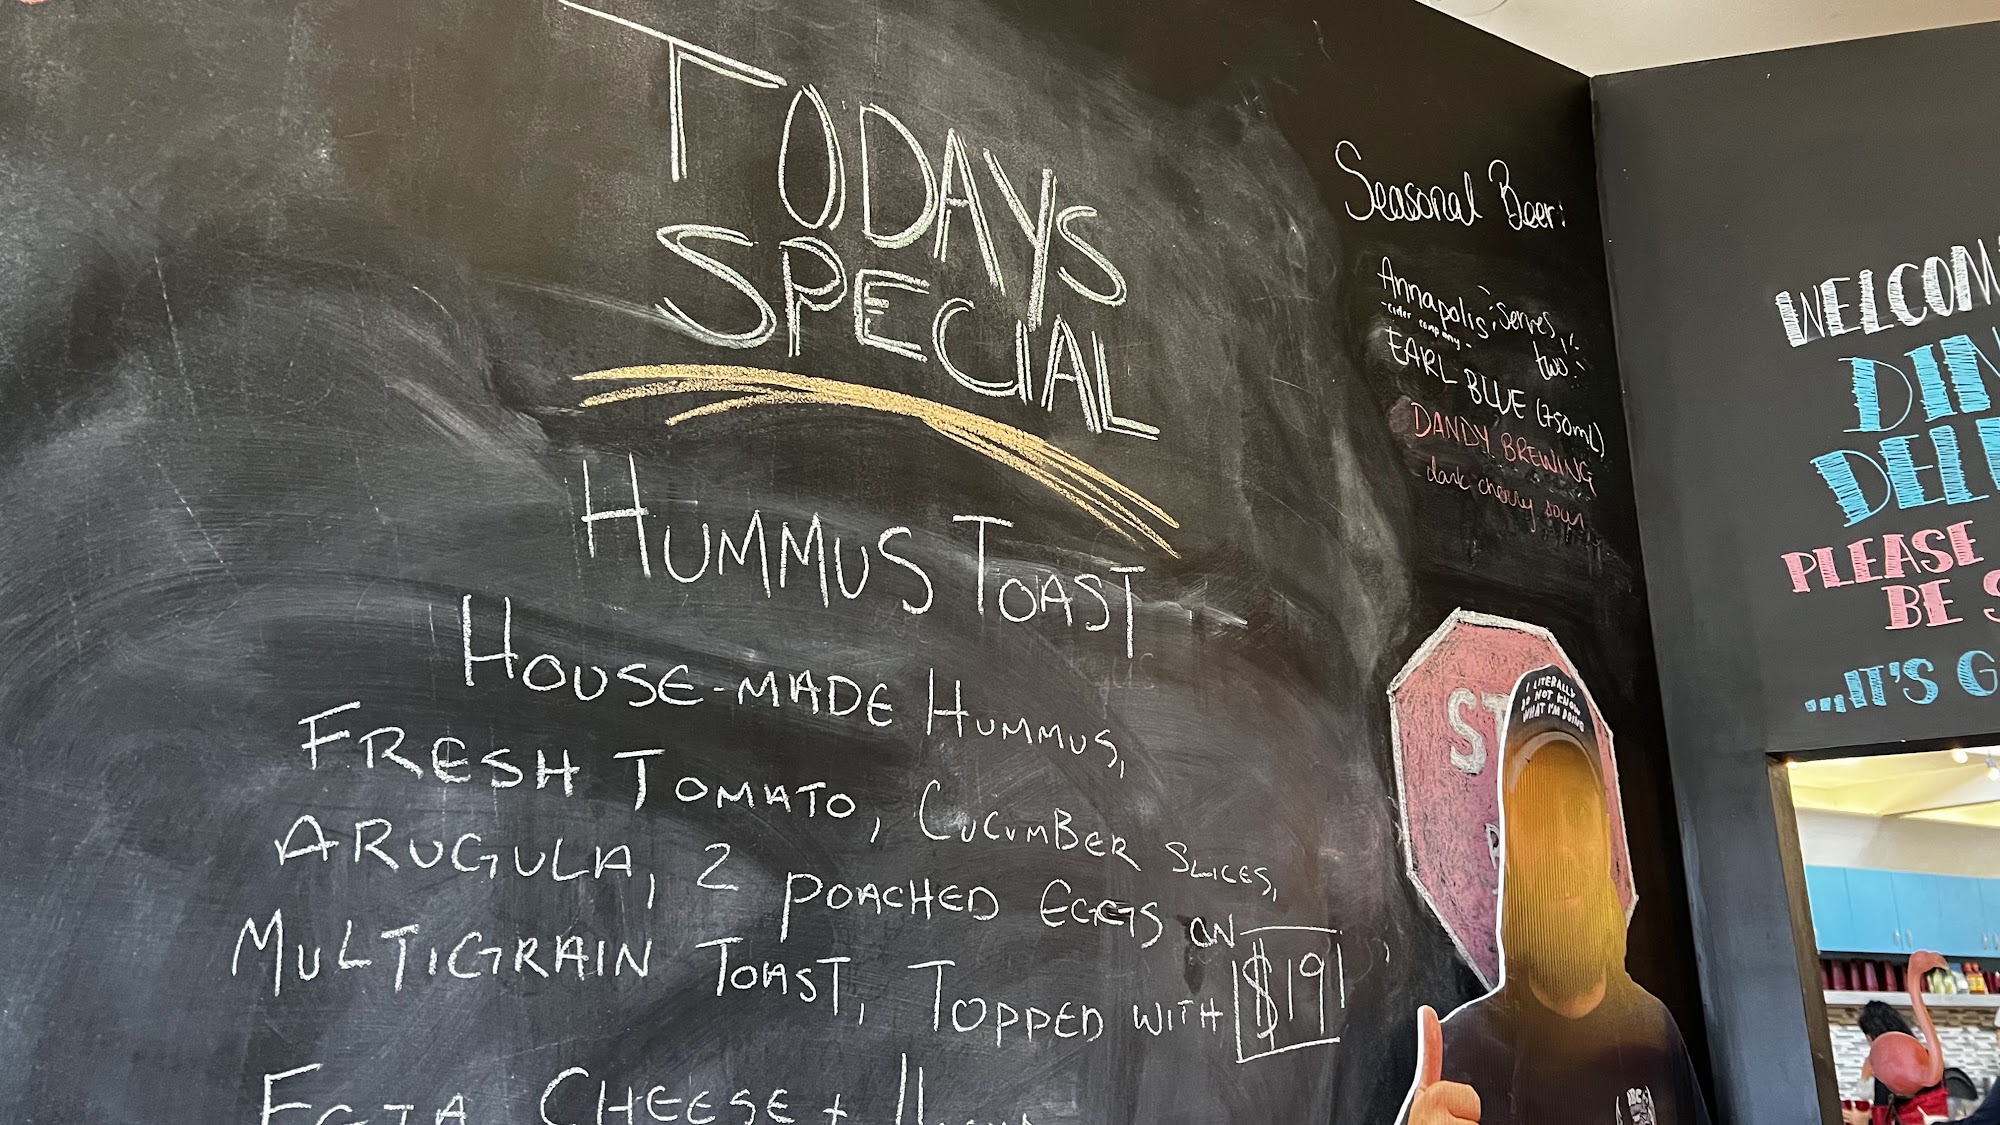 TODAYS
SPECIAL
HUMMUS TOAST
HOUSE-MADE HUMMUS,
FRESH TOMATO, CUCUMBER SLICES,
ARUGULA, 2 POACHED EGGS ON
MULTIGRAIN TOAST, TOPPED WITH
$19
FETA CHEESE +
Seasonal Beer:
Annapolis
-cider company-
serves
two
EARL BLUE (750mL)
DANDY BREWING
dark cherry sour
ST
I LITERALLY
DO NOT KNOW
WHAT I'M DOING
WELCOM
DIN
DEL
PLEASE
BE S
...IT'S G